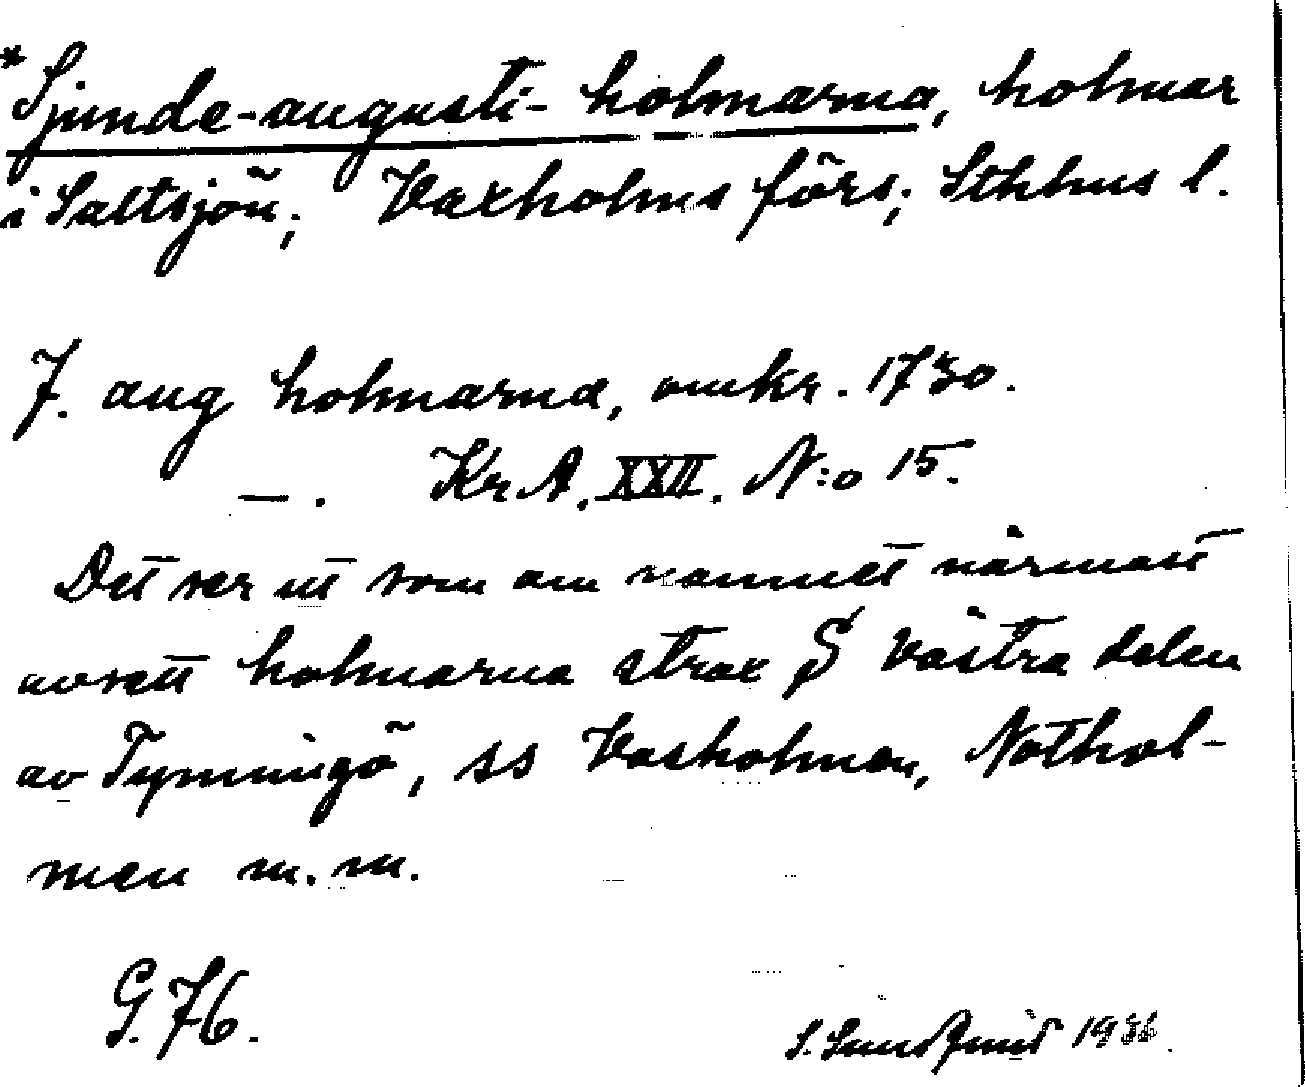 *Sjunde-augusti-holmarna, holmar
i Saltsjön; Vaxholms förs; Sthlms l.
7. aug holmarna, omkr. 1730.
— . KrA. XXII. N:o 15.
Det ser ut som om namnet närmast
avsett holmarna strax S västra delen
av Tynningö, ss Vasholmen, Nöthol-
men m.m.
G. 76.
S. Sundqvist 1936.